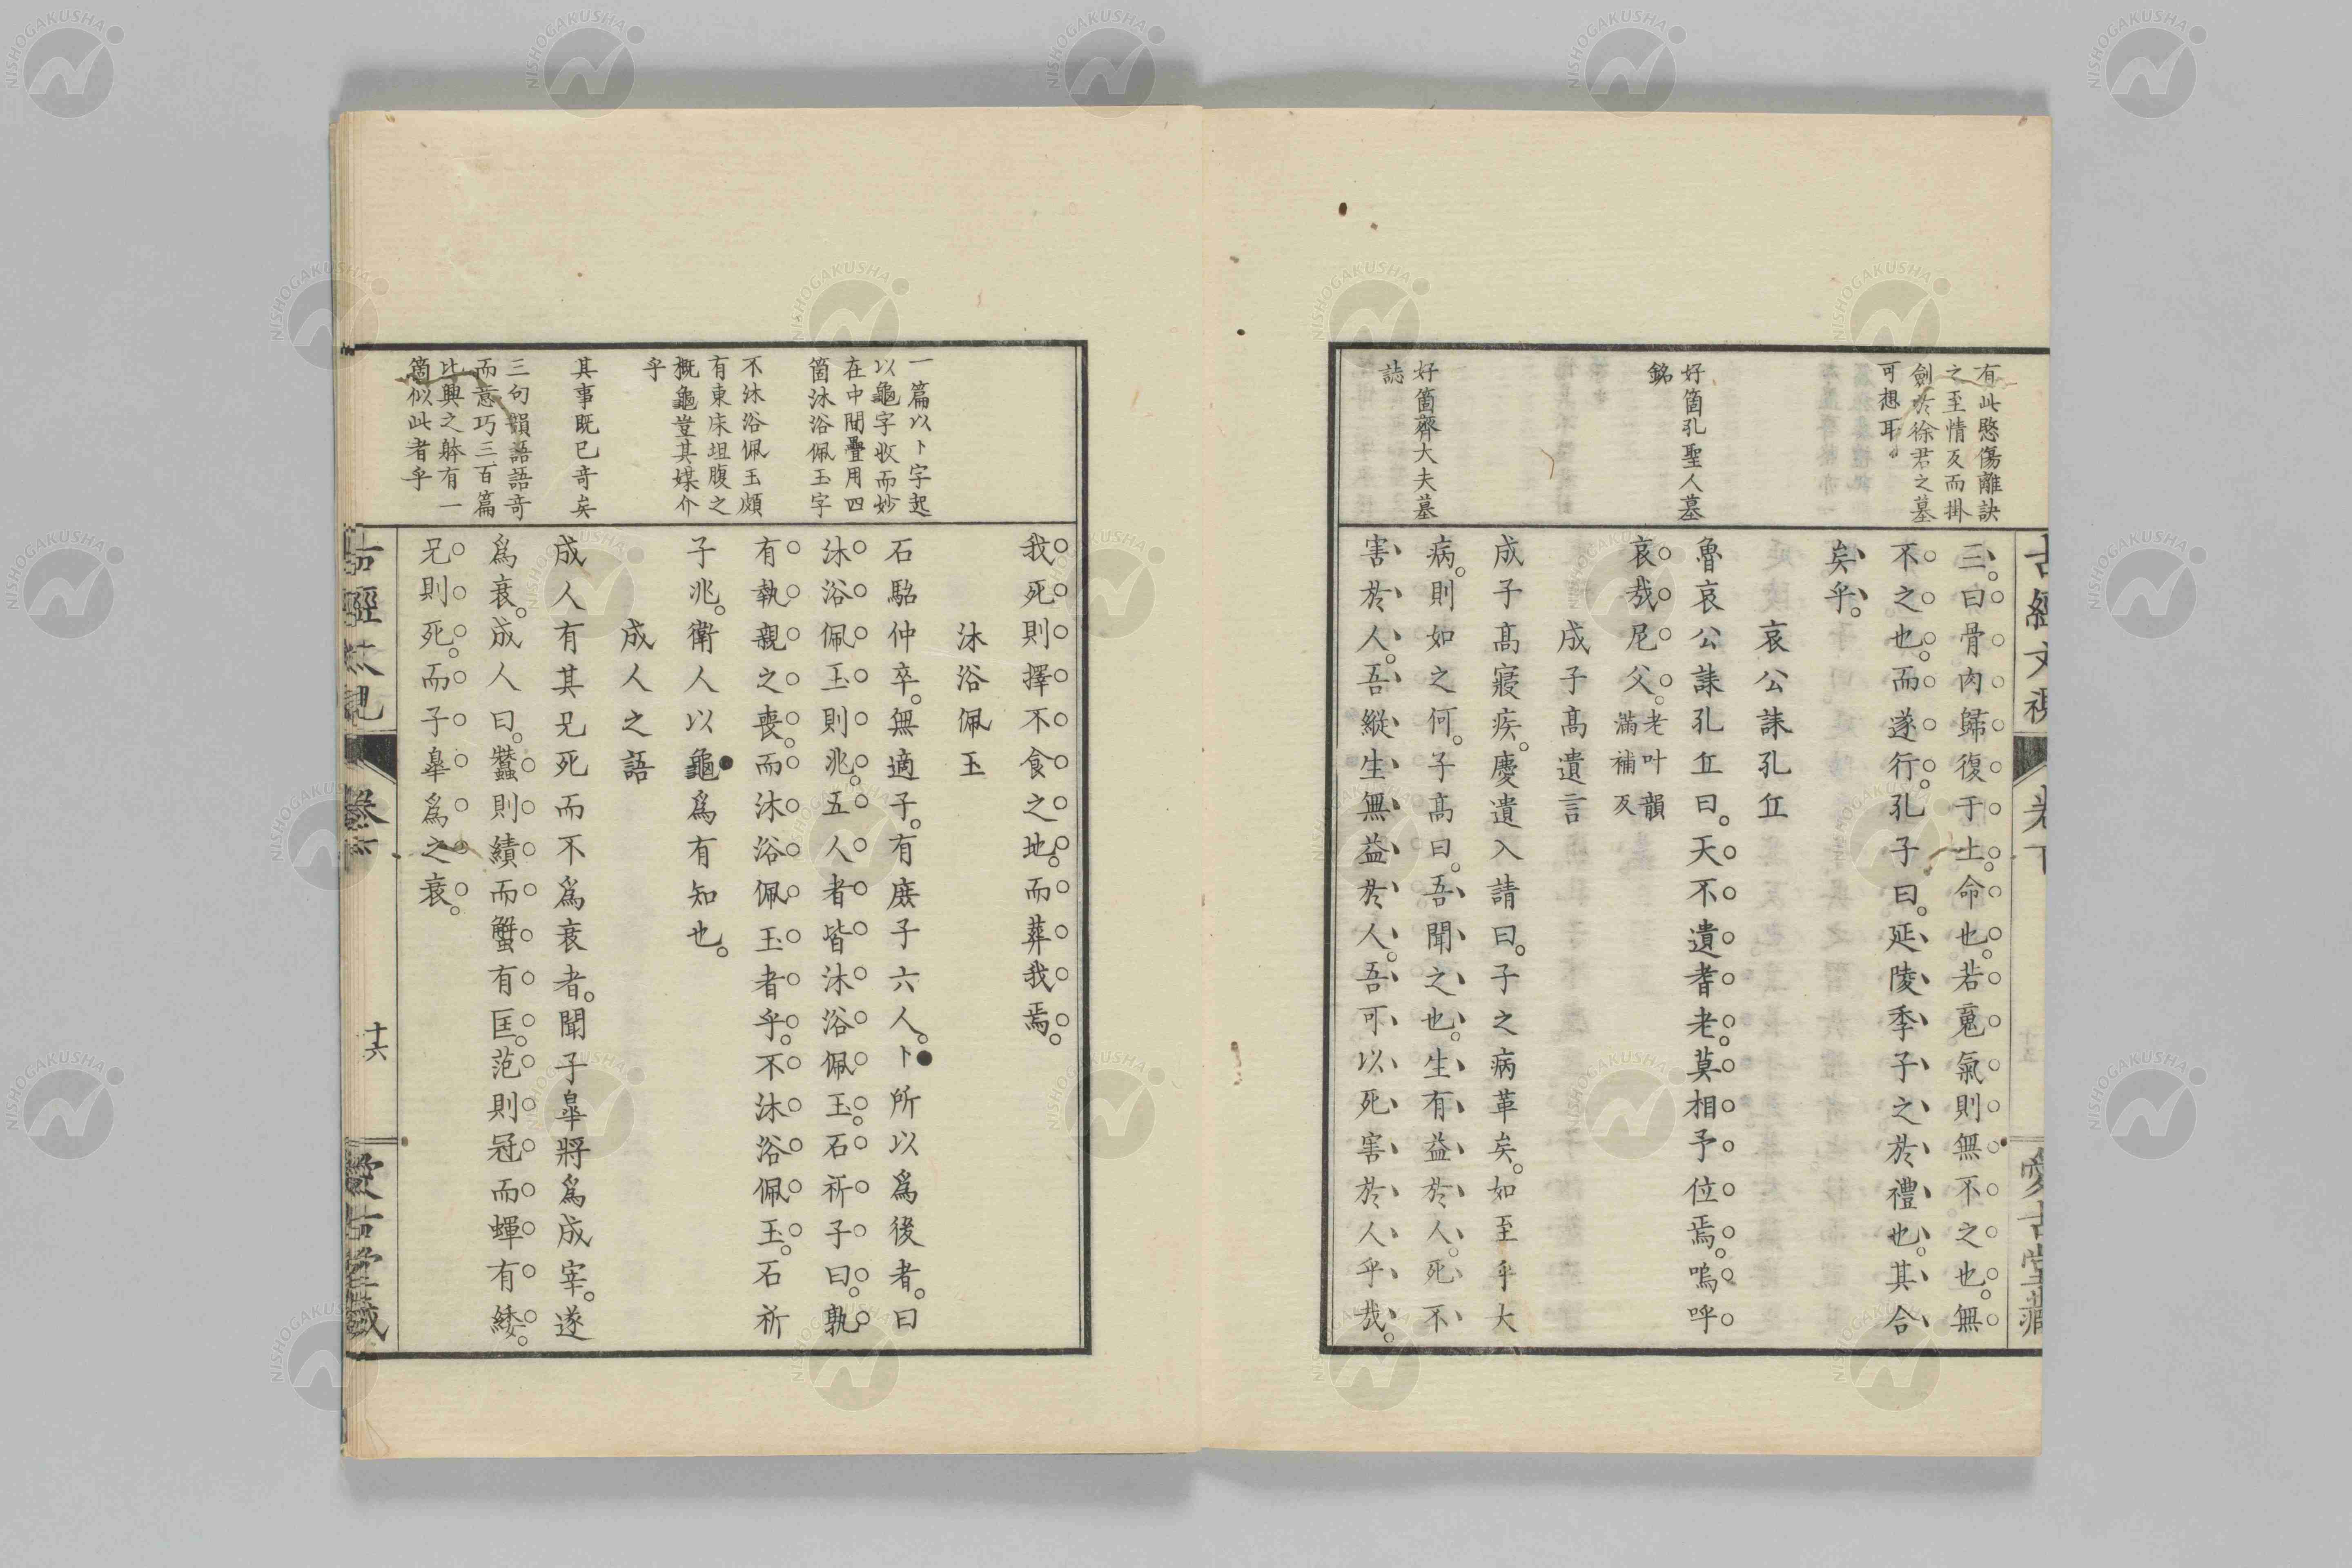 有此愍傷離訣
之至情反而掛
劍於徐君之墓
可想耳
好箇孔聖人墓
銘
好箇齊大夫墓
誌
三。曰骨肉歸復于土。命也。若䰟氣則無不之也。無
不之也。而遂行。孔子曰。延陵季子之於禮也。其合
矣乎。
哀公誄孔丘
魯哀公誄孔丘曰。天不遺耆老。莫相予位焉。嗚呼
哀哉尼父。老叶韻
滿補反
成子高遺言
成子高寢疾。慶遺入請曰。子之病革矣。如至乎大
病。則如之何。子高曰。吾聞之也。生有益於人。死不
害於人。吾縱生無益於人。吾可以死害於人乎哉。
卷下
愛古堂藏
一篇以卜字起
以龜字收而妙
在中間疊用四
箇沐浴佩玉字
不沐浴佩玉頗
有東床坦腹之
概龜豈其媒介
乎
其事既已奇矣
三句韻語語奇
而意巧三百篇
比興之體有一
箇似此者乎
我死則擇不食之地。而葬我焉。
沐浴佩玉
石駘仲卒。無適子。有庶子六人。卜所以爲後者。曰
沐浴佩玉則兆。五人者皆沐浴佩玉。石祈子曰。孰
有執親之喪。而沐浴佩玉者乎。不沐浴佩玉。石祈
子兆。衛人以龜爲有知也。
成人之語
成人有其兄死而不爲衰者。聞子皐將爲成宰。遂
爲衰。成人曰。蠶則績而蟹有匡。范則冠而蟬有緌。
兄則死。而子皐爲之衰。
十六
愛古堂藏
NISHOGAKUSHA